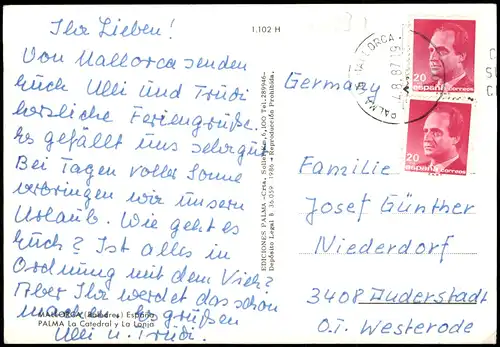 Ihr Lieben!
Von Mallorca senden
Euch Ulli und Trudi
herzliche Feriengrüße.
Es gefällt uns sehr gut.
Bei Tagen voller Sonne
verbringen wir unsern
Urlaub. Wie geht es
Euch? Ist alles in
Ordnung mit dem Vieh?
Aber Ihr werdet das schon
machen. Es grüßen
Ulli u. Trudi.
MALLORCA (Baleares) España
PALMA La Catedral y La Lonja
1.102 H
EDICIONES PALMA
Depósito Legal B 36.059 - 1986 - Reproducción Prohibida.
PALMA MALLORCA
4.8.87
20
españa correos
20
españa correos
Germany
Familie
Josef Günther
Niederdorf
3408 Duderstadt
O.T. Westerode